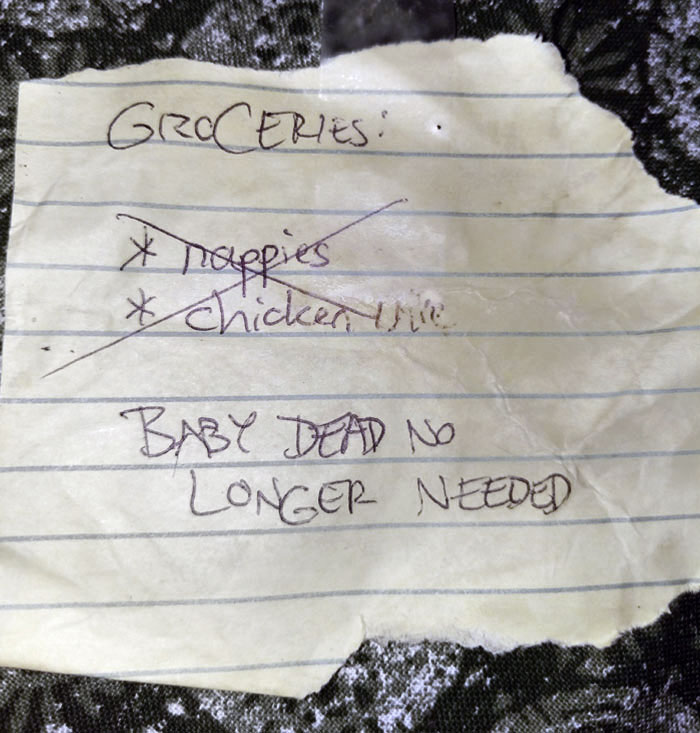 GROCERIES:
* nappies
* chicken
BABY DEAD NO
LONGER NEEDED